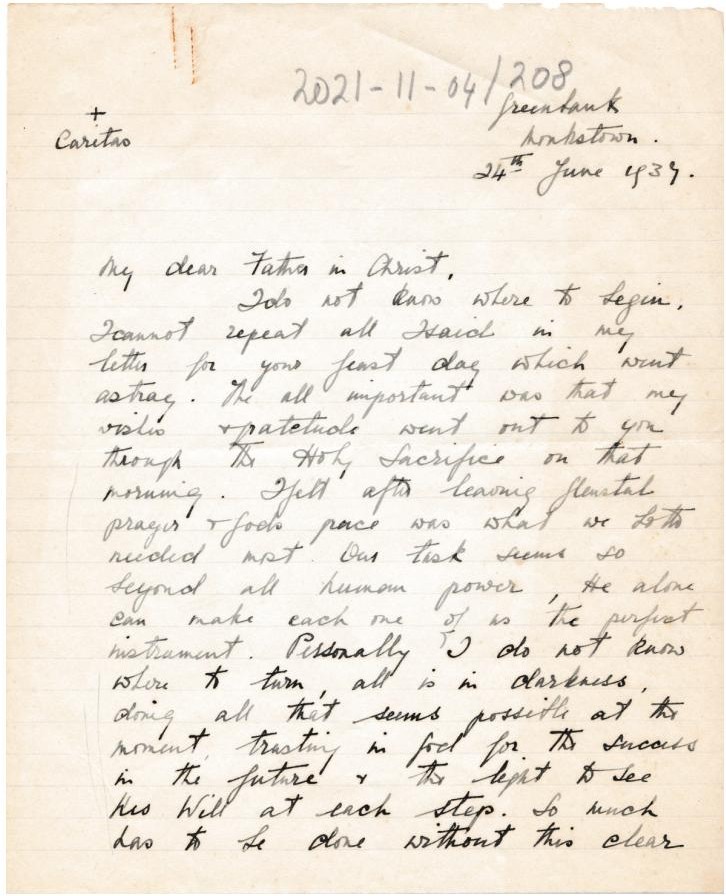 2021-11-04/208
Greenbank
Monkstown.
+
Caritas
24th June 1937.
My dear Father in Christ,
I do not know where to begin.
I cannot repeat all I said in my
letter for your feast day which went
astray. The all important was that my
wishes + gratetude went out to you
through the Holy Sacrifice on that
morning. I felt after leaving Glenstal
prayer + Gods peace was what we both
needed most. Our task seems so
beyond all human power, He alone
can make each one of us the perfect
instrument. Personally I do not know
where to turn, all is in darkness,
doing all that seems possible at the
moment, trusting in God for the success
in the future + the light to see
His Will at each step. So much
has to be done without this clear